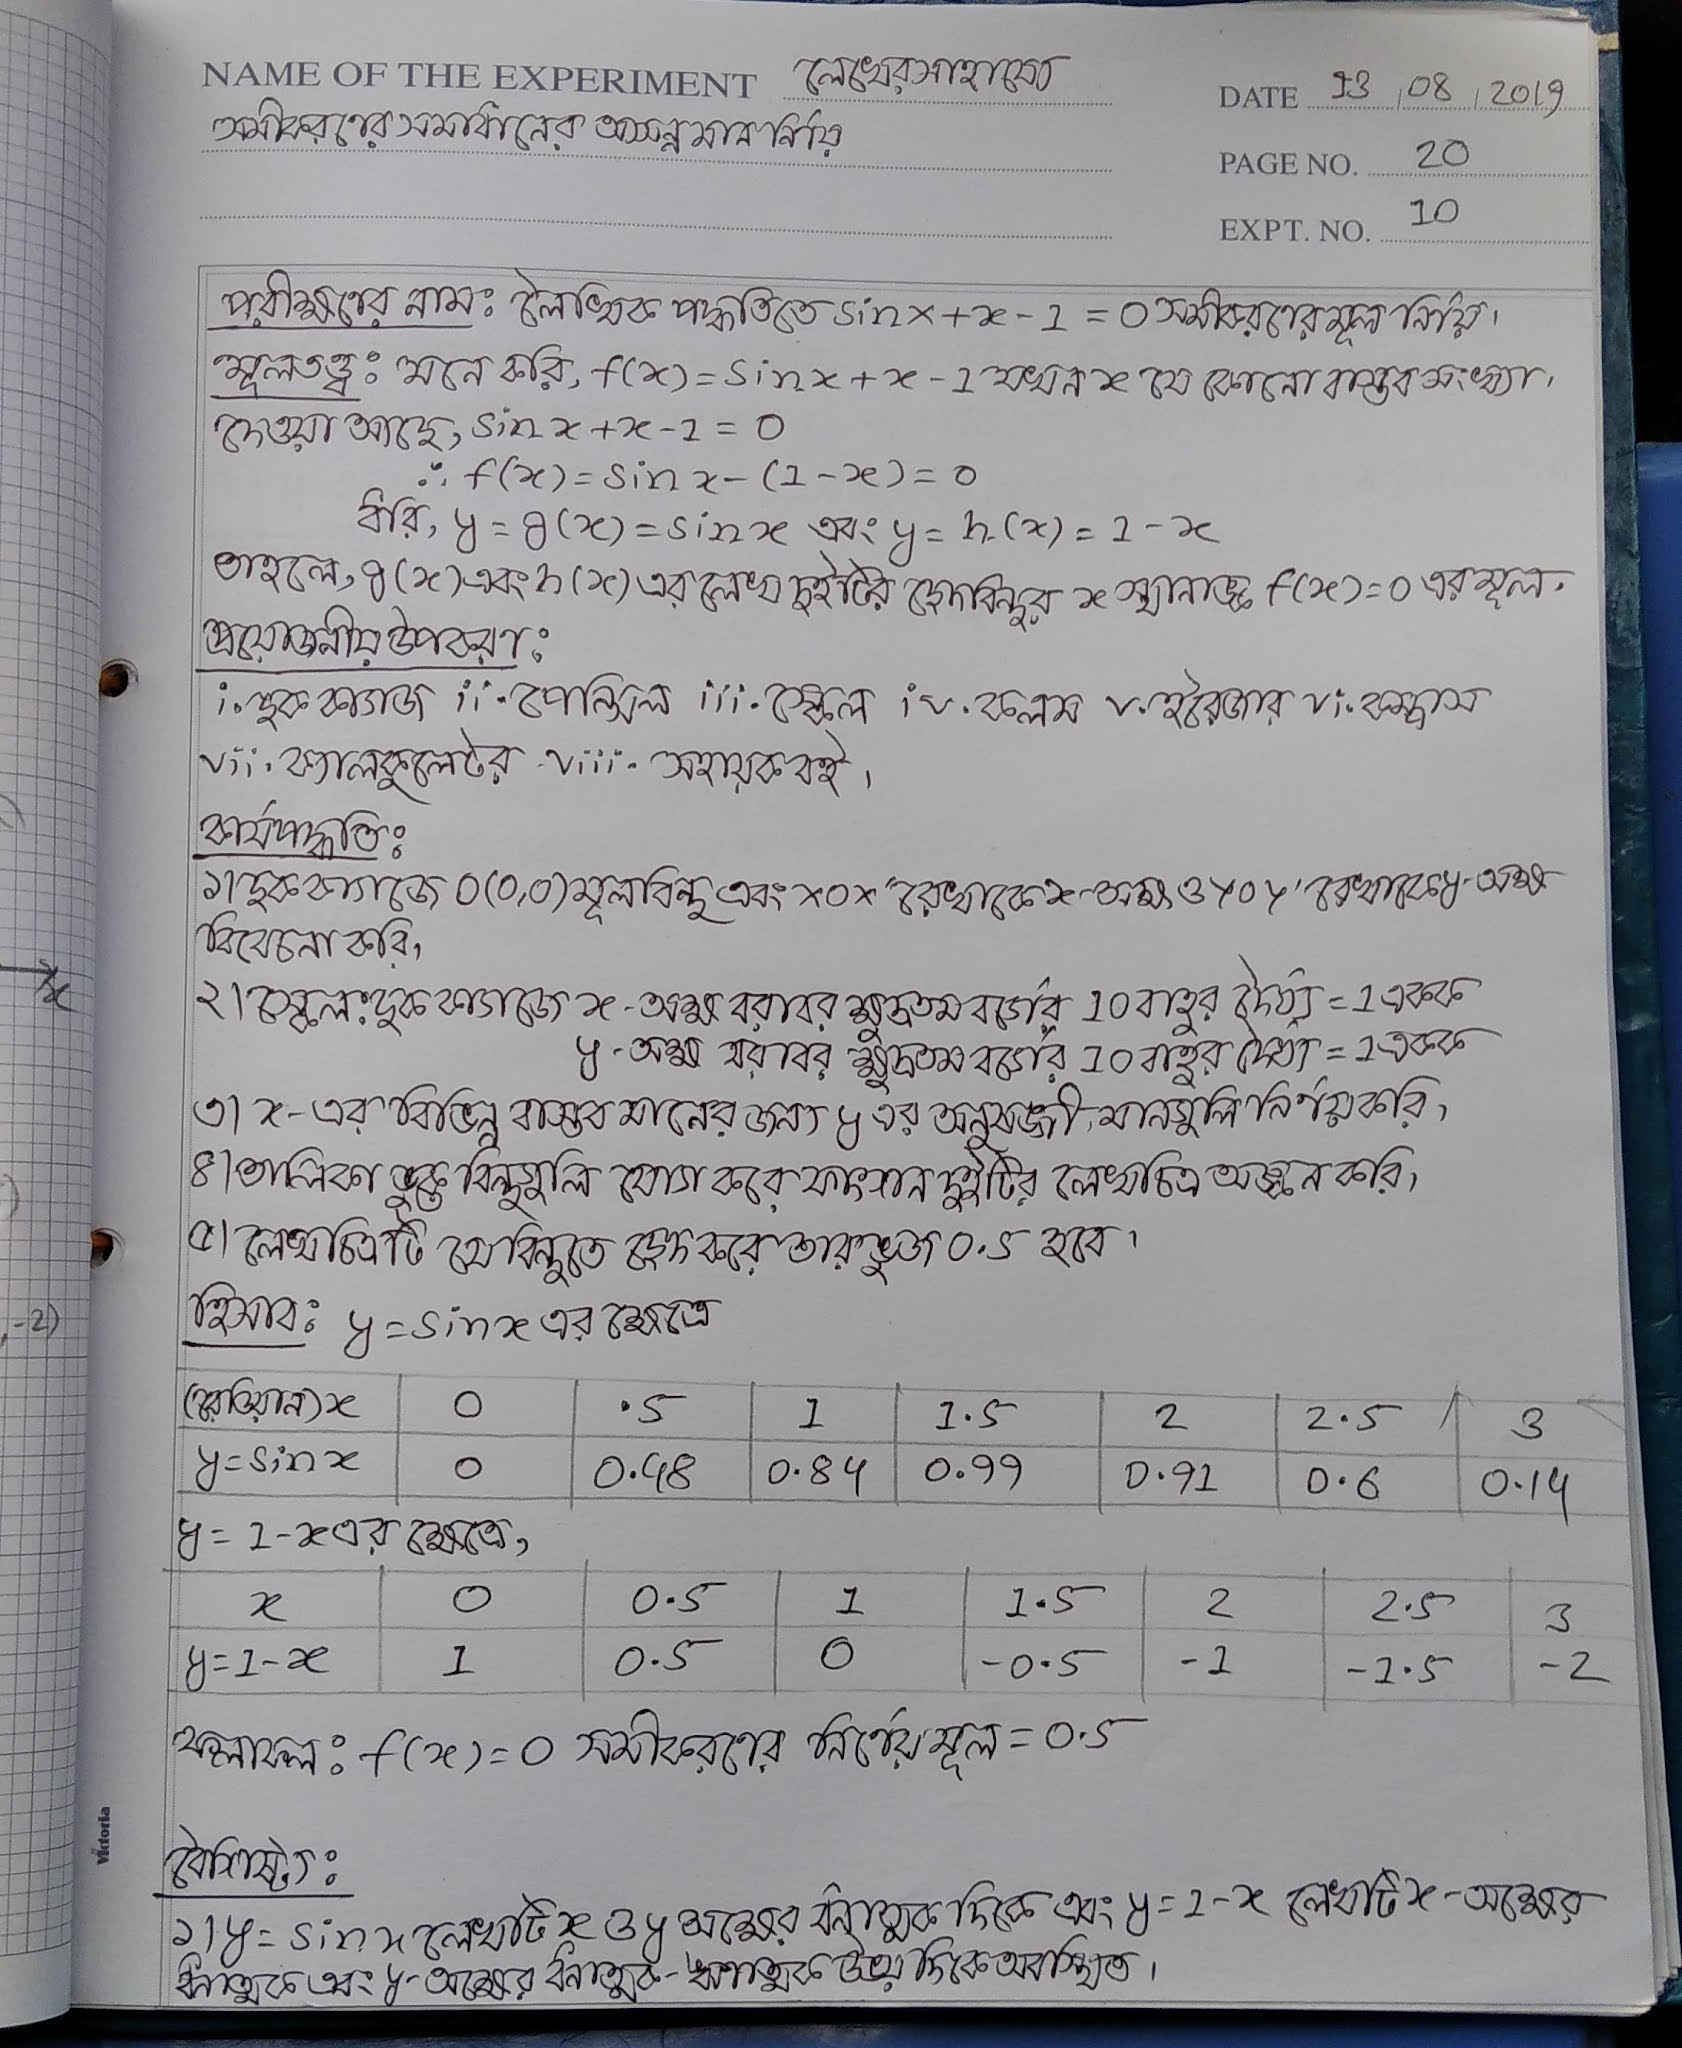 NAME OF THE EXPERIMENT লেখের সাহায্যে
সমীকরণের সমাধানের আসন্ন মান নির্ণয়
DATE 13 08 2019
PAGE NO. 20
EXPT. NO. 10
পরীক্ষণের নাম: লৈখিক পদ্ধতিতে sinx+x-1=0 সমীকরণের মূল নির্ণয়।
মূলতত্ত্ব: মনে করি, f(x)=sinx+x-1 যখন x যে কোনো বাস্তব সংখ্যা।
দেওয়া আছে, sinx+x-1=0
∴ f(x)=sinx-(1-x)=0
ধরি, y=g(x)=sinx এবং y=h(x)=1-x
তাহলে, g(x) এবং h(x) এর লেখ দুইটির ছেদবিন্দুর x স্থানাঙ্ক f(x)=0 এর মূল।
প্রয়োজনীয় উপকরণ:
i. ছক কাগজ ii. পেন্সিল iii. স্কেল iv. কলম v. ইরেজার vi. কম্পাস
vii. ক্যালকুলেটর viii. সহায়ক বই।
কার্যপদ্ধতি:
১) ছক কাগজে O(0,0) মূলবিন্দু এবং XOX' রেখাকে x-অক্ষ ও YOY' রেখাকে y-অক্ষ
বিবেচনা করি।
২) স্কেল: ছক কাগজে x-অক্ষ বরাবর ক্ষুদ্রতম বর্গের 10 বাহুর দৈর্ঘ্য = 1 একক
y-অক্ষ বরাবর ক্ষুদ্রতম বর্গের 10 বাহুর দৈর্ঘ্য = 1 একক
৩) x-এর বিভিন্ন বাস্তব মানের জন্য y এর অনুষঙ্গী মানগুলি নির্ণয় করি।
৪) তালিকা ভুক্ত বিন্দুগুলি যোগ করে ফাংশান দুইটির লেখচিত্র অঙ্কন করি।
৫) লেখচিত্রটি যে বিন্দুতে ছেদ করে তার ভুজ 0.5 হবে।
হিসাব: y=sinx এর ক্ষেত্রে
(রেডিয়ান)x 0 .5 1 1.5 2 2.5 3
y=sinx 0 0.48 0.84 0.99 0.91 0.6 0.14
y=1-x এর ক্ষেত্রে,
x 0 0.5 1 1.5 2 2.5 3
y=1-x 1 0.5 0 -0.5 -1 -1.5 -2
ফলাফল: f(x)=0 সমীকরণের নির্ণেয় মূল = 0.5
বৈশিষ্ট্য:
১) y=sinx লেখটি x ও y অক্ষের ধনাত্মক দিকে এবং y=1-x লেখটি x-অক্ষের
ধনাত্মক এবং y-অক্ষের ধনাত্মক-ঋণাত্মক উভয় দিকে অবস্থিত।
Victoria
x
, -2)